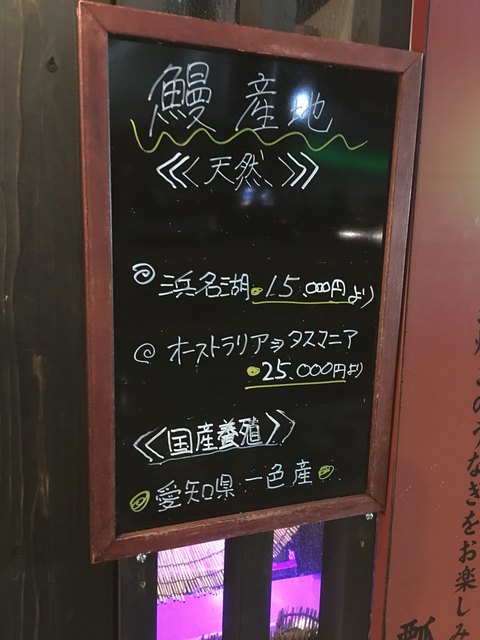 鰻産地
《天然》
浜名湖 15,000円より
オーストラリア⇒タスマニア
25,000円より
《国産養殖》
愛知県 一色産
うなぎをお楽しみ